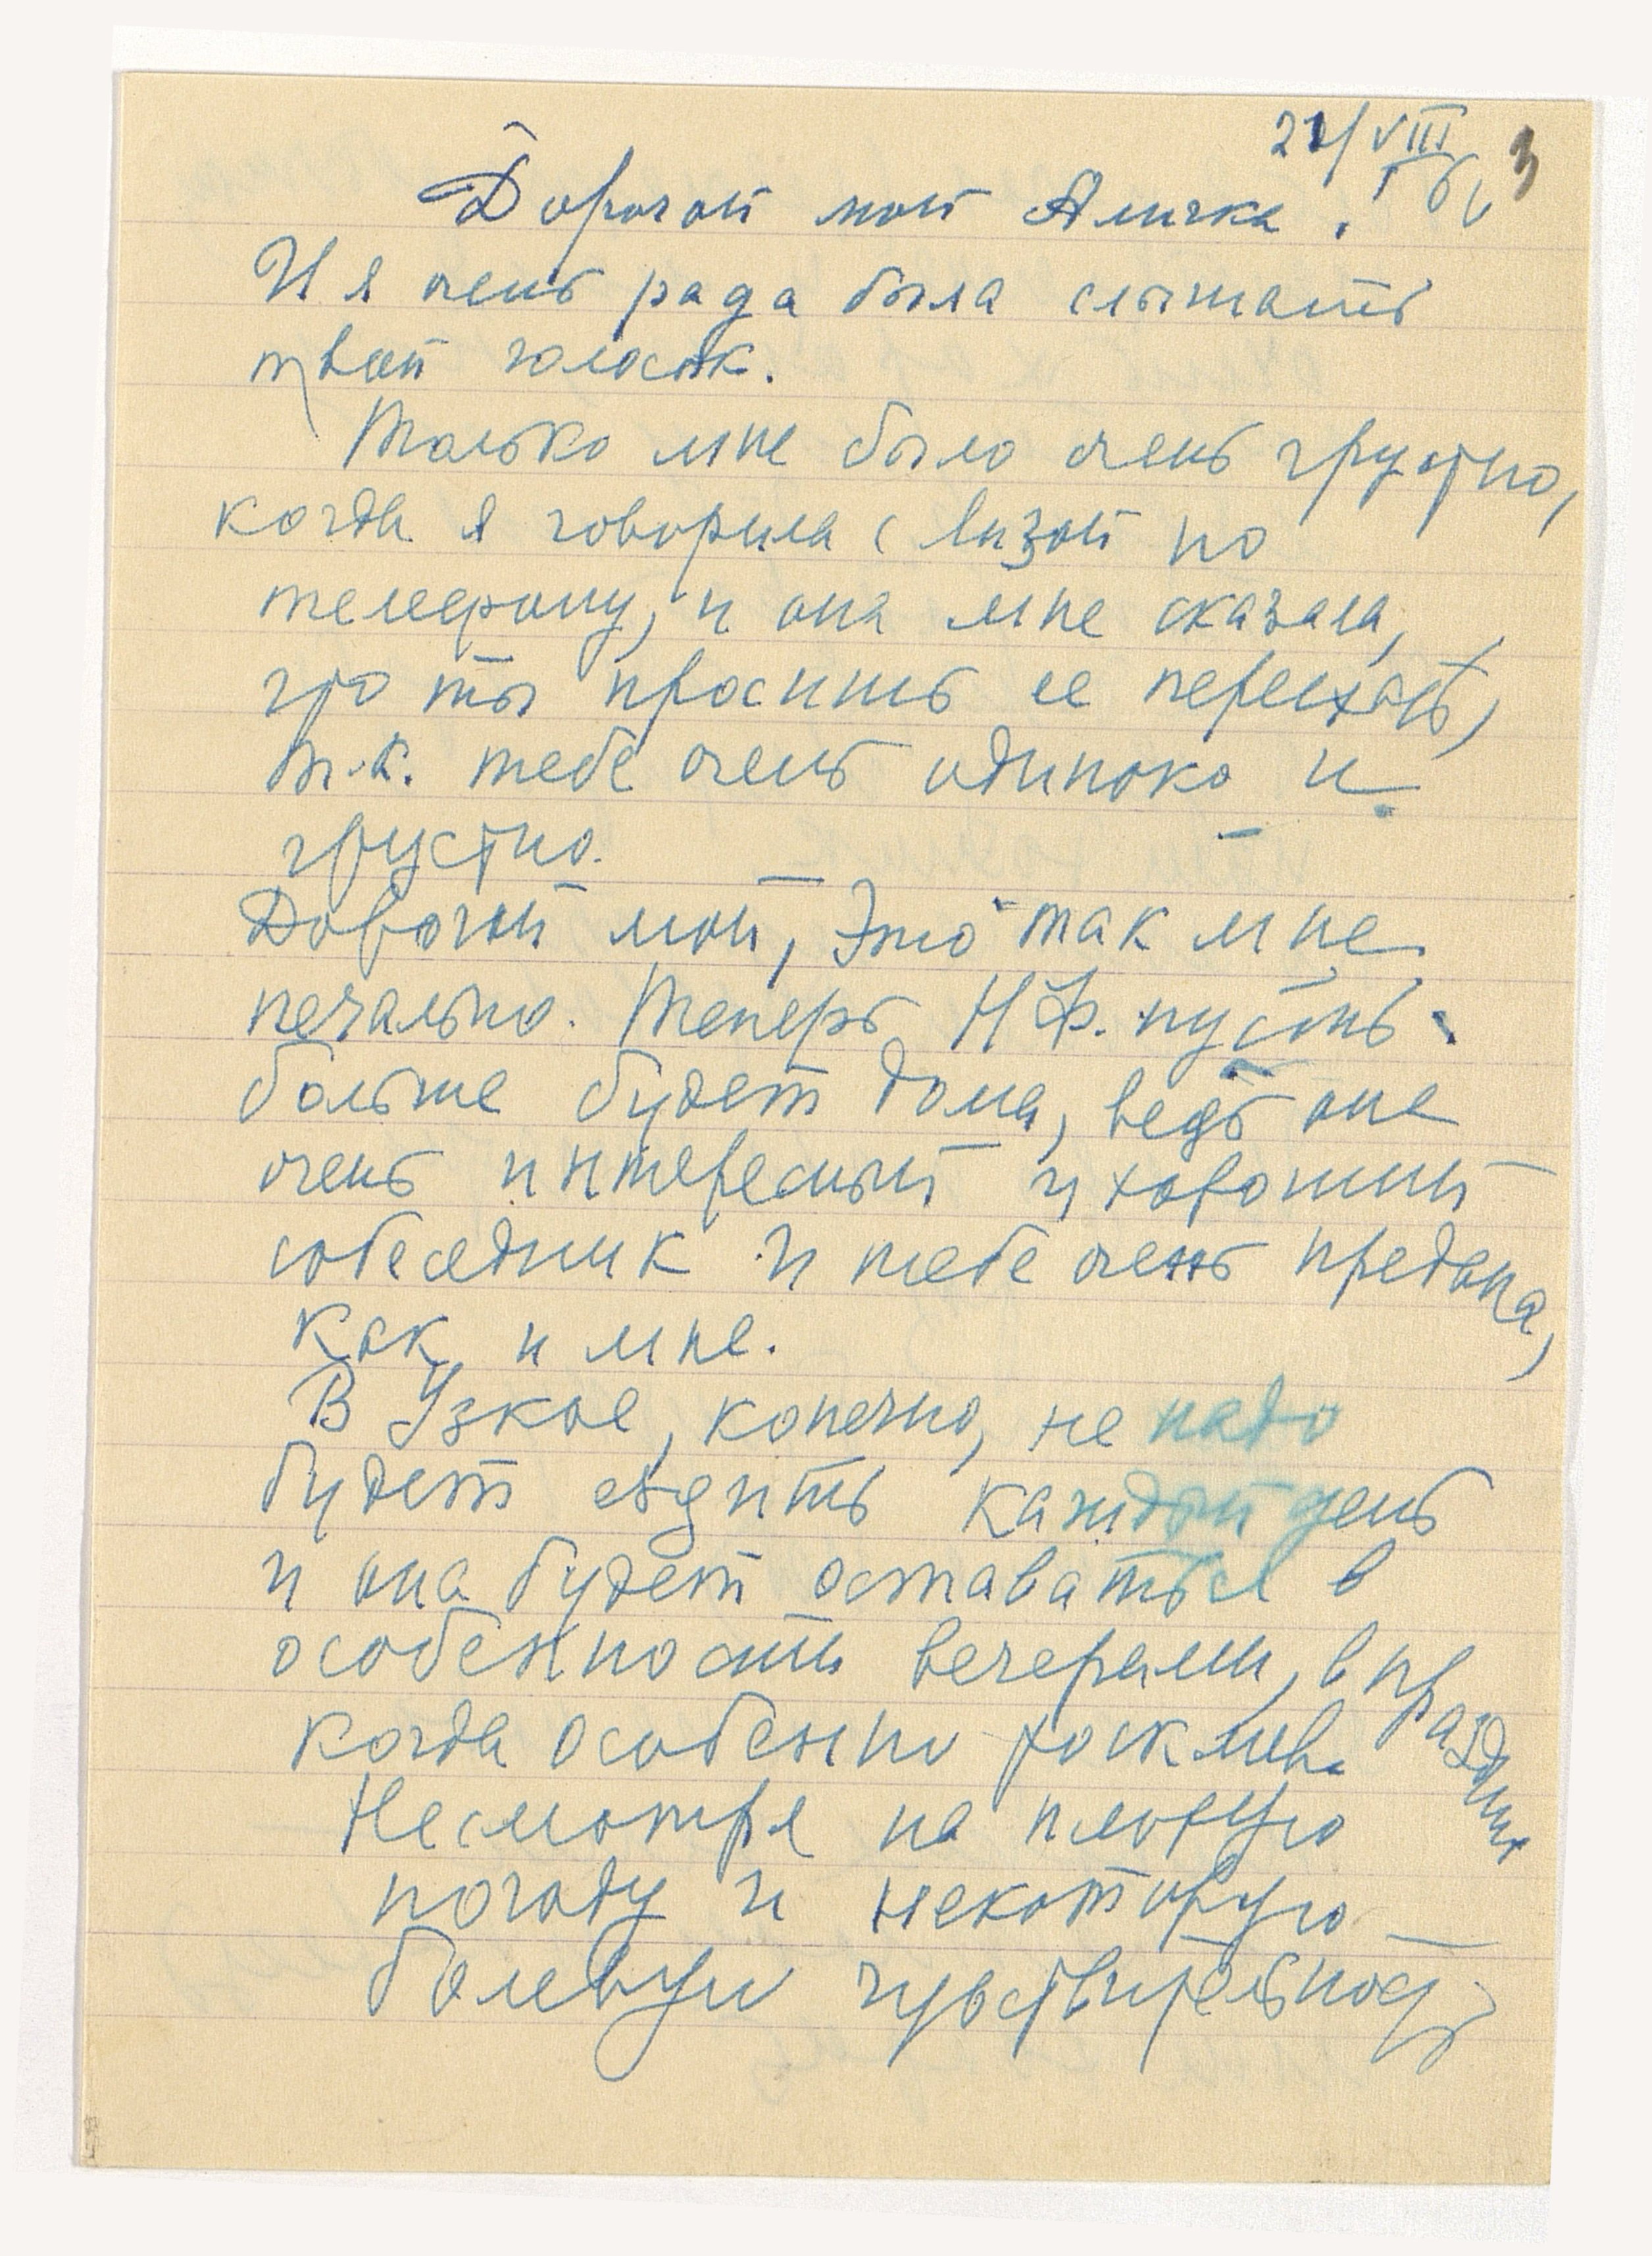 21/VIII 3
Дорогой мой Аличка!
И я очень рада была слышать
твой голосок.
Только мне было очень грустно,
когда я говорила с Лизой по
телефону, и она мне сказала,
что ты просишь ее переехать,
т.к. тебе очень одиноко и
грустно.
Дорогой мой, это так мне
печально. Теперь Н.Ф. пусть
больше будет дома, ведь она
очень интересный и хороший
собеседник и тебе очень предана,
как и мне.
В Узкое, конечно, не надо
будет ездить каждый день
и она будет оставаться в
особенности вечерами, в праздник
когда особенно тоскливо
Несмотря на плохую
погоду и некоторую
болевую чувствительность